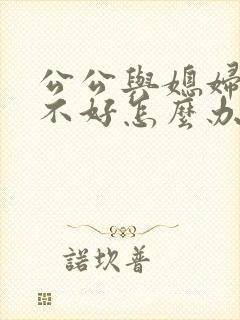 公公與媳婦
不好怎麼办
諾坎普